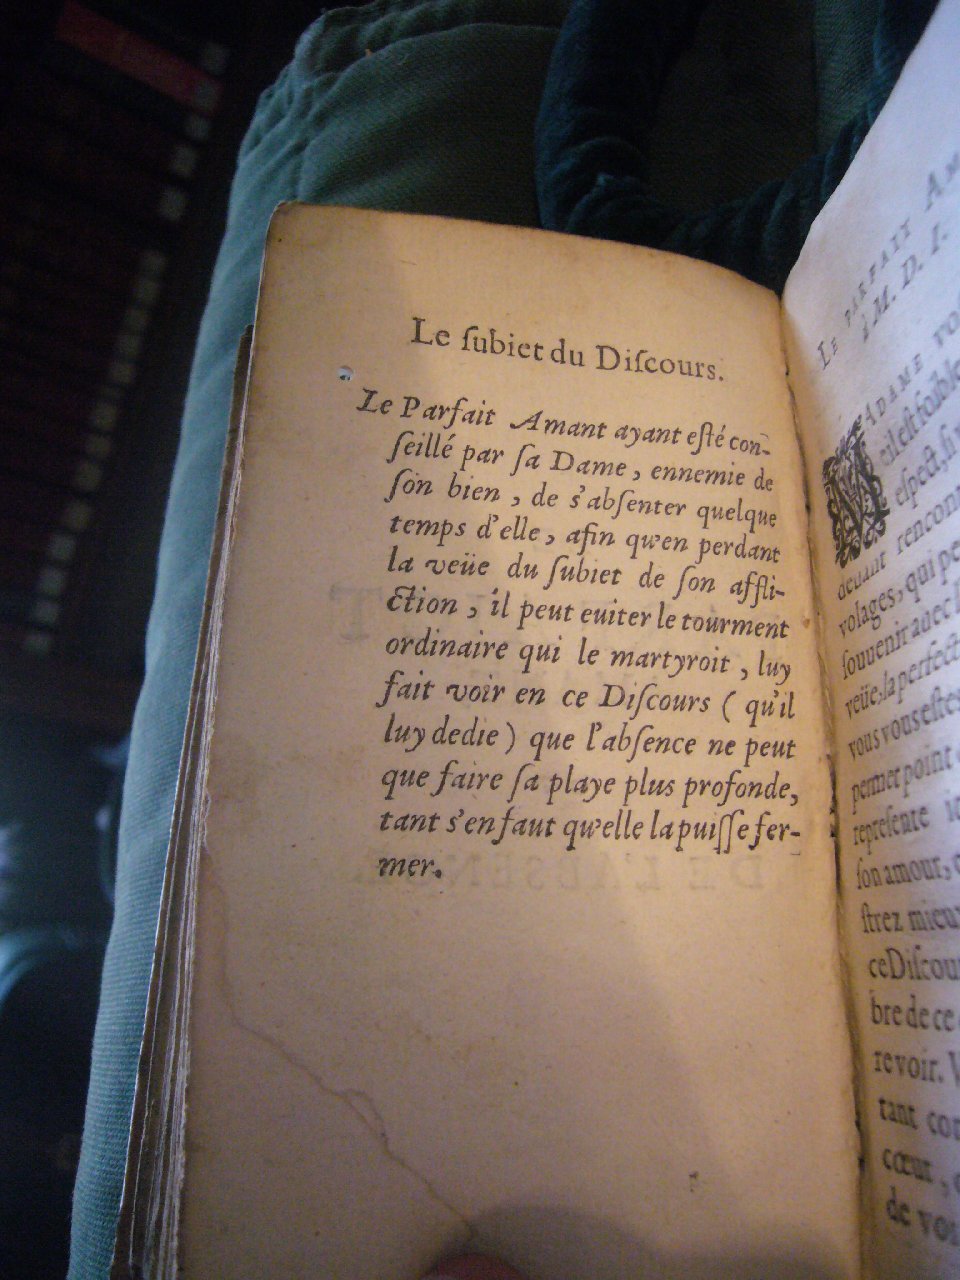 Le ſubiet du Diſcours.
Le Parfait Amant ayant eſté con-
ſeillé par ſa Dame, ennemie de
ſon bien, de s'abſenter quelque
temps d'elle, afin qu'en perdant
la veüe du ſubiet de ſon affli-
ction, il peut euiter le tourment
ordinaire qui le martyroit, luy
fait voir en ce Diſcours (qu'il
luy dedie) que l'abſence ne peut
que faire ſa playe plus profonde,
tant s'en faut qu'elle la puiſſe fer-
mer.
LE PARFAIT
à M. D. I.
ADAME
eſt foible
eſpect,
deuant
volages, qui
ſouuenir auec
veüe, la perfect
vous vous eſtes
permet point
repreſente
ſon amour,
ſtrez mieux
ce Diſcou
bre de ce
reuoir.
tant
cœur,
de